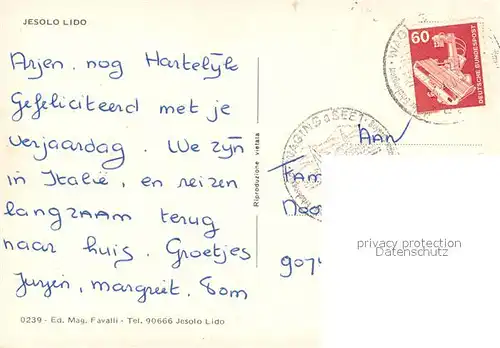 JESOLO LIDO
Arjen. nog Hartelijk
Gefeliciteerd met je
verjaardag. We zijn
in Italië, en reizen
langzaam terug
naar huis. Groetjes
Jurjen, margreet. Tom
0239 - Ed. Mag. Favalli - Tel. 90666 Jesolo Lido
Riproduzione vietata
60
DEUTSCHE BUNDESPOST
WAGING a SEE
Aan
Fam
907
privacy protection
Datenschutz